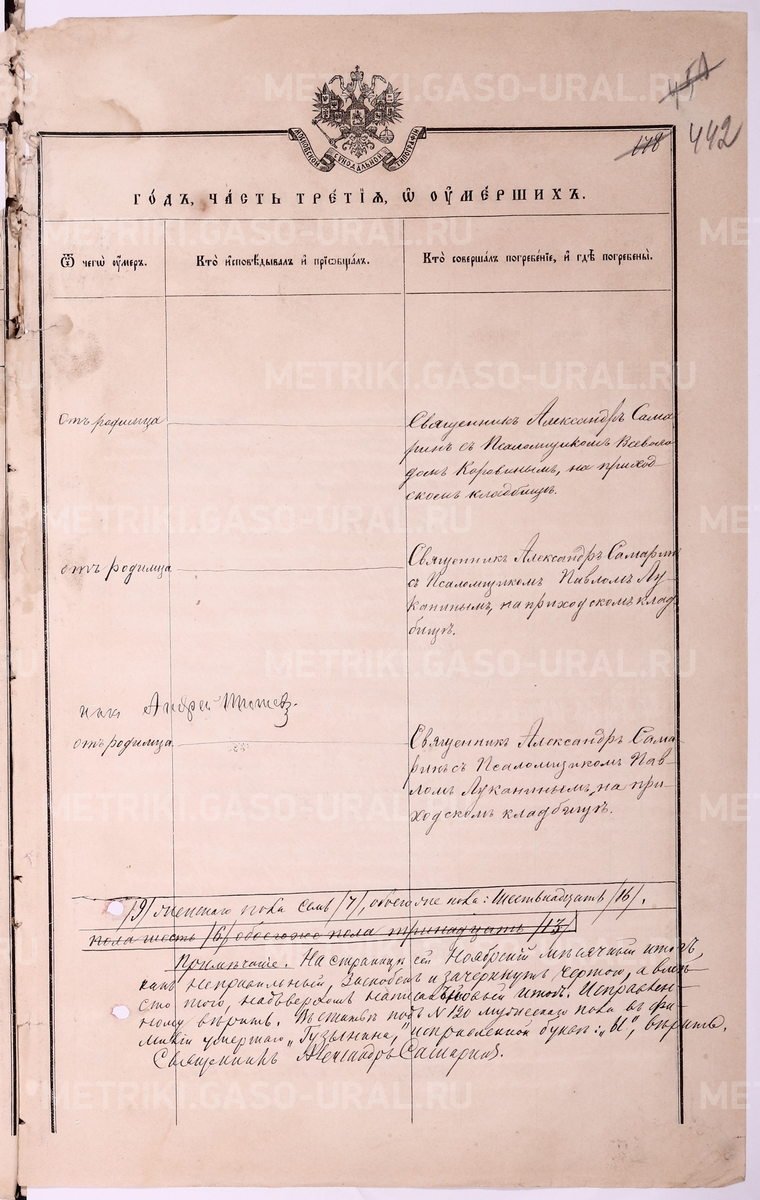 METRIKI.GASO-URAL.RU
МОСКОВСКОЙ СѴНОДАЛЬНОЙ ТИПОГРАФІИ
178
442
ГО́ДЪ, ЧА́СТЬ ТРЕ́ТІѦ, Ѡ҆ ОУ҆МЕ́РШИХЪ.
Ѿ чегѡ̀ оу҆́мер.
Кто̀ и҆сповѣ́дывалъ и҆ прїѡбща́лъ.
Кто̀ соверша́лъ погребе́нїе, и҆ гдѣ̀ погребены̀.
отъ родимца
Священникъ Александръ Сама-
ринъ съ Псаломщикомъ Всеволо-
домъ Коровинымъ, на приход-
скомъ кладбищѣ.
отъ родимца
Священникъ Александръ Самаринъ
съ Псаломщикомъ Павломъ Лу-
канинымъ, на приходскомъ клад-
бищѣ.
Андрей
отъ родимца
Священникъ Александръ Сама-
ринъ съ Псаломщикомъ Пав-
ломъ Луканинымъ, на при-
ходскомъ кладбищѣ.
/9/ женскаго пола семь /7/, обоего же пола: шестьнадцать /16/.
пола шесть /6/ обоего же пола тринадцать /13/
Примѣчаніе. На страницѣ сей Ноябрскій мѣсячный итогъ,
какъ неправильный, заскобленъ и зачеркнутъ чертою, а вмѣ-
сто того, надъ верхомъ написанъ новый итогъ. Исправлен-
ному вѣрить. Въ статьѣ подъ № 120 мужескаго пола въ фа-
миліи умершаго „Гузынина," исправленной буквѣ: „Ы", вѣрить.
Священникъ Александръ Самаринъ.